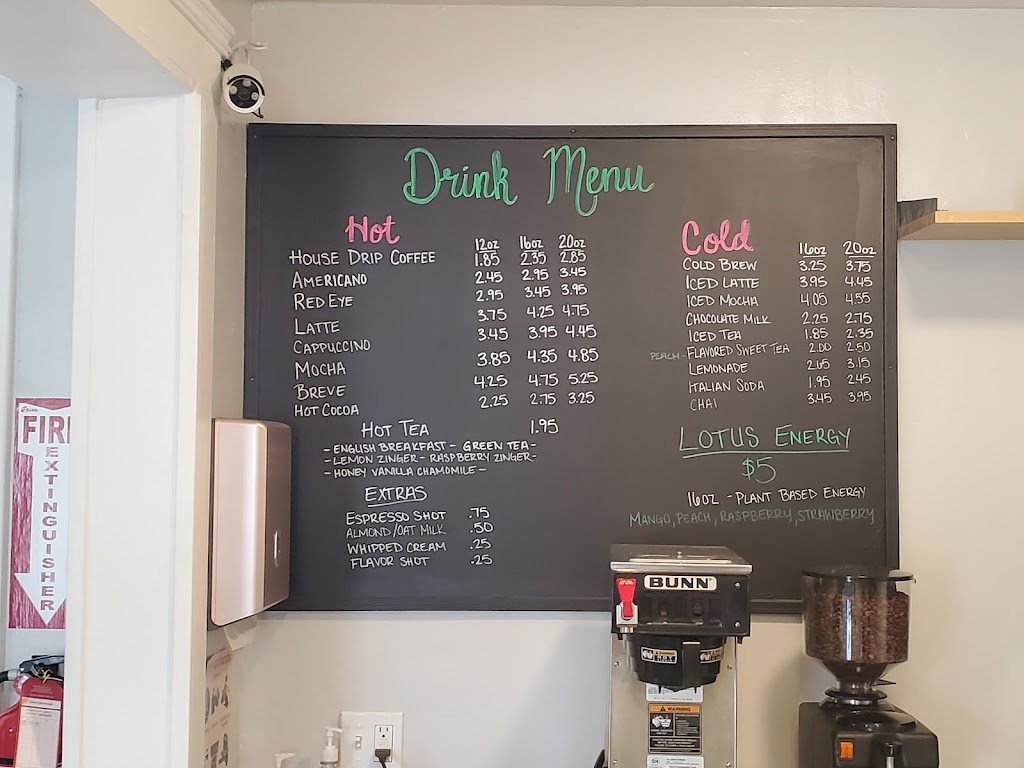 Drink Menu
Hot
12oz 16oz 20oz
HOUSE DRIP COFFEE 1.85 2.35 2.85
AMERICANO 2.45 2.95 3.45
RED EYE 2.95 3.45 3.95
LATTE 3.75 4.25 4.75
CAPPUCCINO 3.45 3.95 4.45
MOCHA 3.85 4.35 4.85
BREVE 4.25 4.75 5.25
HOT COCOA 2.25 2.75 3.25
HOT TEA 1.95
- ENGLISH BREAKFAST - GREEN TEA -
- LEMON ZINGER - RASPBERRY ZINGER -
- HONEY VANILLA CHAMOMILE -
EXTRAS
ESPRESSO SHOT .75
ALMOND/OAT MILK .50
WHIPPED CREAM .25
FLAVOR SHOT .25
Cold
16oz 20oz
COLD BREW 3.25 3.75
ICED LATTE 3.95 4.45
ICED MOCHA 4.05 4.55
CHOCOLATE MILK 2.25 2.75
ICED TEA 1.85 2.35
PEACH - FLAVORED SWEET TEA 2.00 2.50
LEMONADE 2.65 3.15
ITALIAN SODA 1.95 2.45
CHAI 3.45 3.95
LOTUS ENERGY
$5
16oz - PLANT BASED ENERGY
MANGO, PEACH, RASPBERRY, STRAWBERRY
FIRE
EXTINGUISHER
BUNN
WARNING